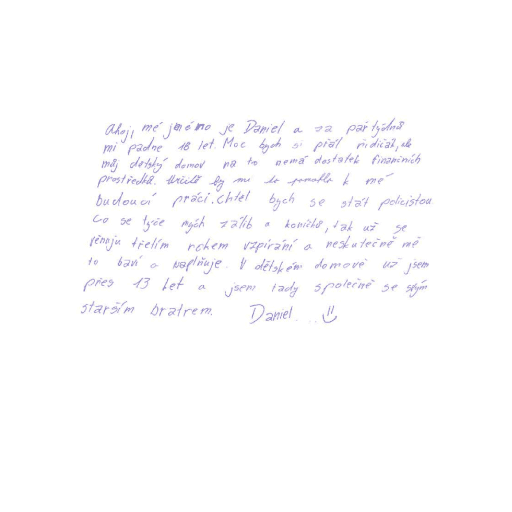 Ahoj, mé jméno je Daniel a za pár týdnů
mi padne 18 let. Moc bych si přál řidičák, ale
můj dětský domov na to nemá dostatek finančních
prostředků. Určitě by mi to pomohlo k mé
budoucí práci. Chtěl bych se stát policistou.
Co se týče mých zálib a koníčků, tak už se
věnuju třetím rokem vzpírání a neskutečně mě
to baví a naplňuje. V dětském domově už jsem
přes 13 let a jsem tady společně se svým
starším bratrem. Daniel...